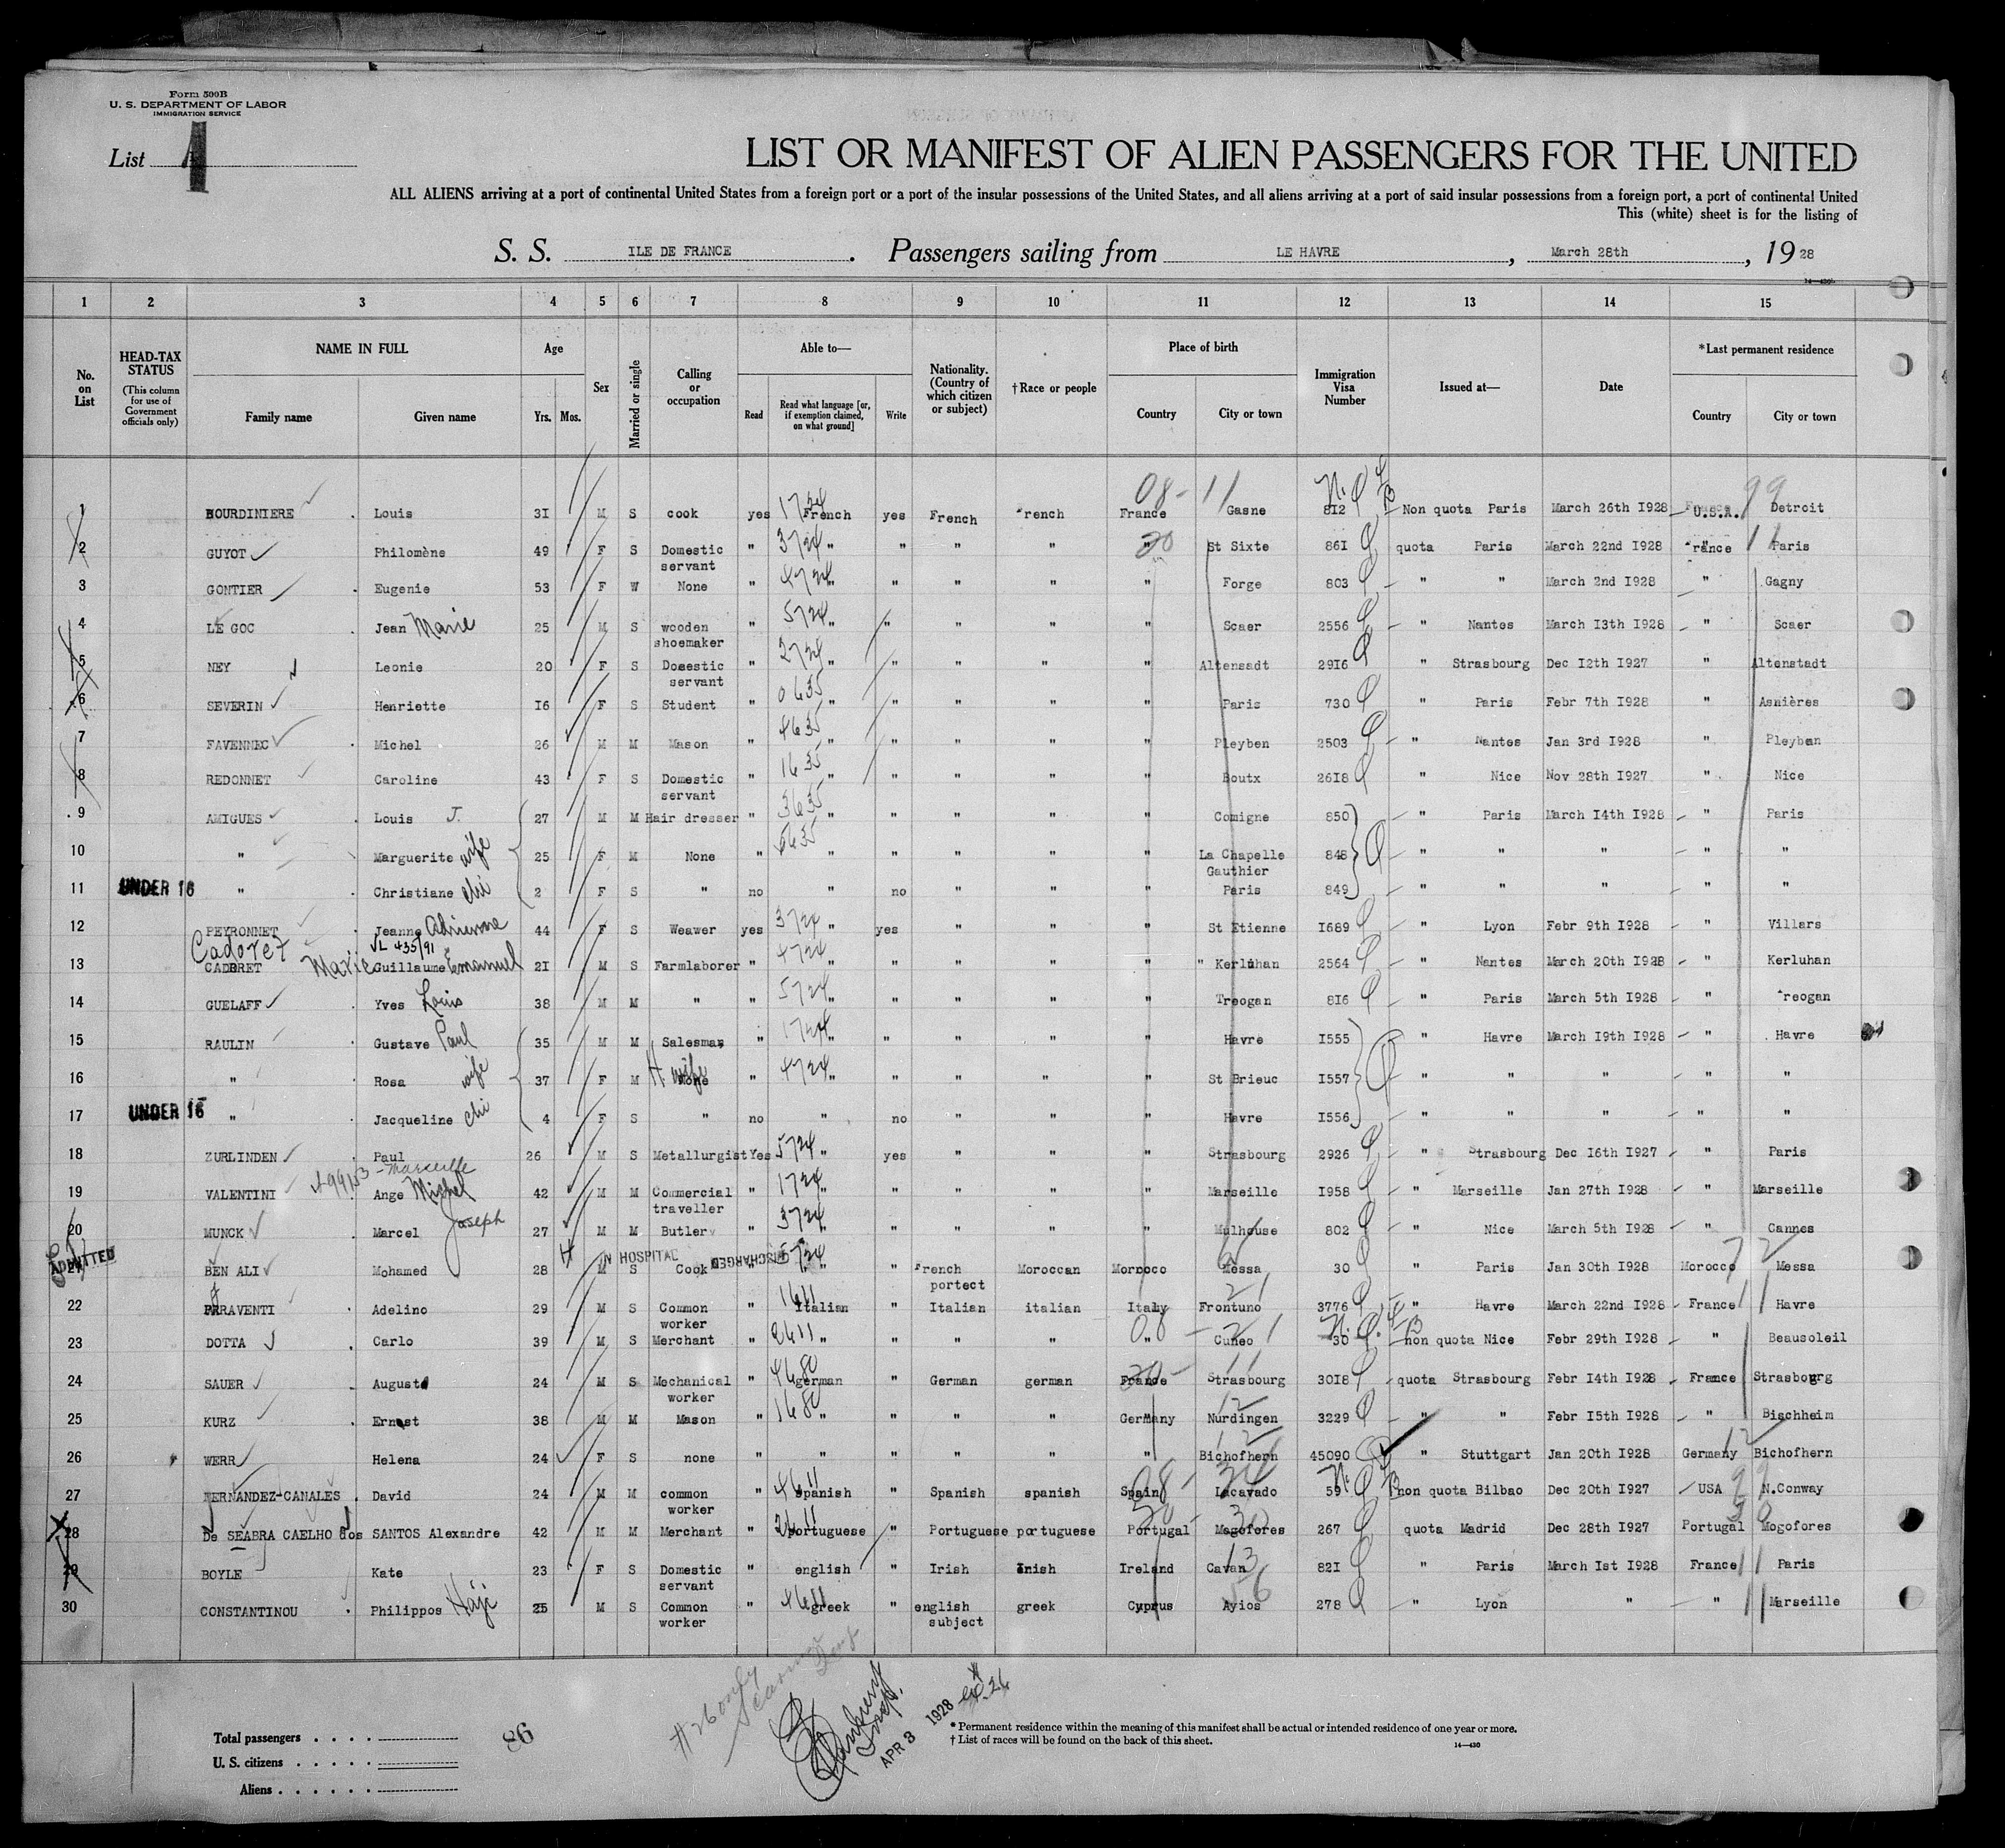 Form 500B
U. S. DEPARTMENT OF LABOR
IMMIGRATION SERVICE
List 1
LIST OR MANIFEST OF ALIEN PASSENGERS FOR THE UNITED
ALL ALIENS arriving at a port of continental United States from a foreign port or a port of the insular possessions of the United States, and all aliens arriving at a port of said insular possessions from a foreign port, a port of continental United
This (white) sheet is for the listing of
S. S. ILE DE FRANCE. Passengers sailing from LE HAVRE, March 28th, 1928
1 2 3 4 5 6 7 8 9 10 11 12 13 14 15
No. on List
HEAD-TAX STATUS (This column for use of Government officials only)
NAME IN FULL
Family name Given name
Age
Yrs. Mos.
Sex
Married or single
Calling or occupation
Able to—
Read Read what language [or, if exemption claimed, on what ground] Write
Nationality. (Country of which citizen or subject)
† Race or people
Place of birth
Country City or town
Immigration Visa Number
Issued at—
Date
*Last permanent residence
Country City or town
1 BOURDINIERE Louis 3I M S cook yes French yes French rench France Gasne 8I2 Non quota Paris March 26th I928 U.S.A. Detroit
2 GUYOT Philomène 49 F S Domestic servant " " " " " " St Sixte 86I quota Paris March 22nd I928 rance Paris
3 GONTIER Eugenie 53 F W None " " " " " " Forge 803 " " March 2nd I928 " Gagny
4 LE GOC Jean Marie 25 M S wooden shoemaker " " " " " " Scaer 2556 " Nantes March I3th I928 " Scaer
5 NEY Leonie 20 F S Domestic servant " " " " " " Altensadt 29I6 " Strasbourg Dec I2th I927 " Altenstadt
6 SEVERIN Henriette I6 F S Student " " " " " " Paris 730 " Paris Febr 7th I928 " Asnières
7 FAVENNEC Michel 26 M M Mason " " " " " " Pleyben 2503 " Nantes Jan 3rd I928 " Pleyben
8 REDONNET Caroline 43 F S Domestic servant " " " " " " Boutx 26I8 " Nice Nov 28th I927 " Nice
9 AMIGUES Louis J. 27 M M Hair dresser " " " " " " Comigne 850 " Paris March I4th I928 " Paris
10 " Marguerite wife 25 F M None " " " " " " La Chapelle Gauthier 848 " " " " "
11 UNDER 16 " Christiane chi 2 F S " no " no " " " Paris 849 " " " " "
12 PEYRONNET Jeanne Adrienne 44 F S Weawer yes " yes " " " St Etienne I689 " Lyon Febr 9th I928 " Villars
Cadoret
13 CADBRET Marie Guillaume Emanuel 2I M S Farmlaborer " " " " " " " Kerluhan 2564 " Nantes March 20th I928 " Kerluhan
14 GUELAFF Yves Louis 38 M M " " " " " " " Treogan 8I6 " Paris March 5th I928 " reogan
15 RAULIN Gustave Paul 35 M M Salesman " " " " " " Havre I555 " Havre March I9th I928 " Havre
16 " Rosa wife 37 F M H wife None " " " " " " St Brieuc I557 " " " " "
17 UNDER 16 " Jacqueline chi 4 F S " no " no " " " Havre I556 " " " " "
18 ZURLINDEN Paul 26 M S Metallurgist Yes " yes " " " Strasbourg 2926 " Strasbourg Dec I6th I927 " Paris
19 VALENTINI Ange Michel 42 M M Commercial traveller " " " " " " Marseille I958 " Marseille Jan 27th I928 " Marseille
20 MUNCK Marcel Joseph 27 M M Butler " " " " " " Mulhouse 802 " Nice March 5th I928 " Cannes
ADMITTED IN HOSPITAL DISCHARGED
21 BEN ALI Mohamed 28 M S Cook " " " rench portect Moroccan Morroco Messa 30 " Paris Jan 30th I928 Morocco Messa
22 PARAVENTI Adelino 29 M S Common worker " Italian " Italian italian Italy Frontuno 3776 " Havre March 22nd I928 France Havre
23 DOTTA Carlo 39 M S Merchant " " " " " " Cuneo 30 non quota Nice Febr 29th I928 " Beausoleil
24 SAUER August 24 M S Mechanical worker " german " German german France Strasbourg 30I8 quota Strasbourg Febr I4th I928 France Strasbourg
25 KURZ Ernest 38 M M Mason " " " " " Germany Nurdingen 3229 " " Febr I5th I928 " Bischheim
26 WERR Helena 24 F S none " " " " " " Bichofhern 45090 " Stuttgart Jan 20th I928 Germany Bichofhern
27 FERNANDEZ-CANALES David 24 M M common worker " Spanish " Spanish spanish Spain Lacavado 59 non quota Bilbao Dec 20th I927 USA N.Conway
28 De SEABRA CAELHO dos SANTOS Alexandre 42 M M Merchant " portuguese " Portuguese portuguese Portugal Mogofores 267 quota Madrid Dec 28th I927 Portugal Mogofores
29 BOYLE Kate 23 F S Domestic servant " english " Irish inish Ireland Cavan 82I " Paris March Ist I928 France Paris
30 CONSTANTINOU Philippos Haji 25 M S Common worker " greek " english subject greek Cyprus Ayios 278 " Lyon " " Marseille
Total passengers
U. S. citizens
Aliens
86
APR 3 1928
* Permanent residence within the meaning of this manifest shall be actual or intended residence of one year or more.
† List of races will be found on the back of this sheet.
14—430